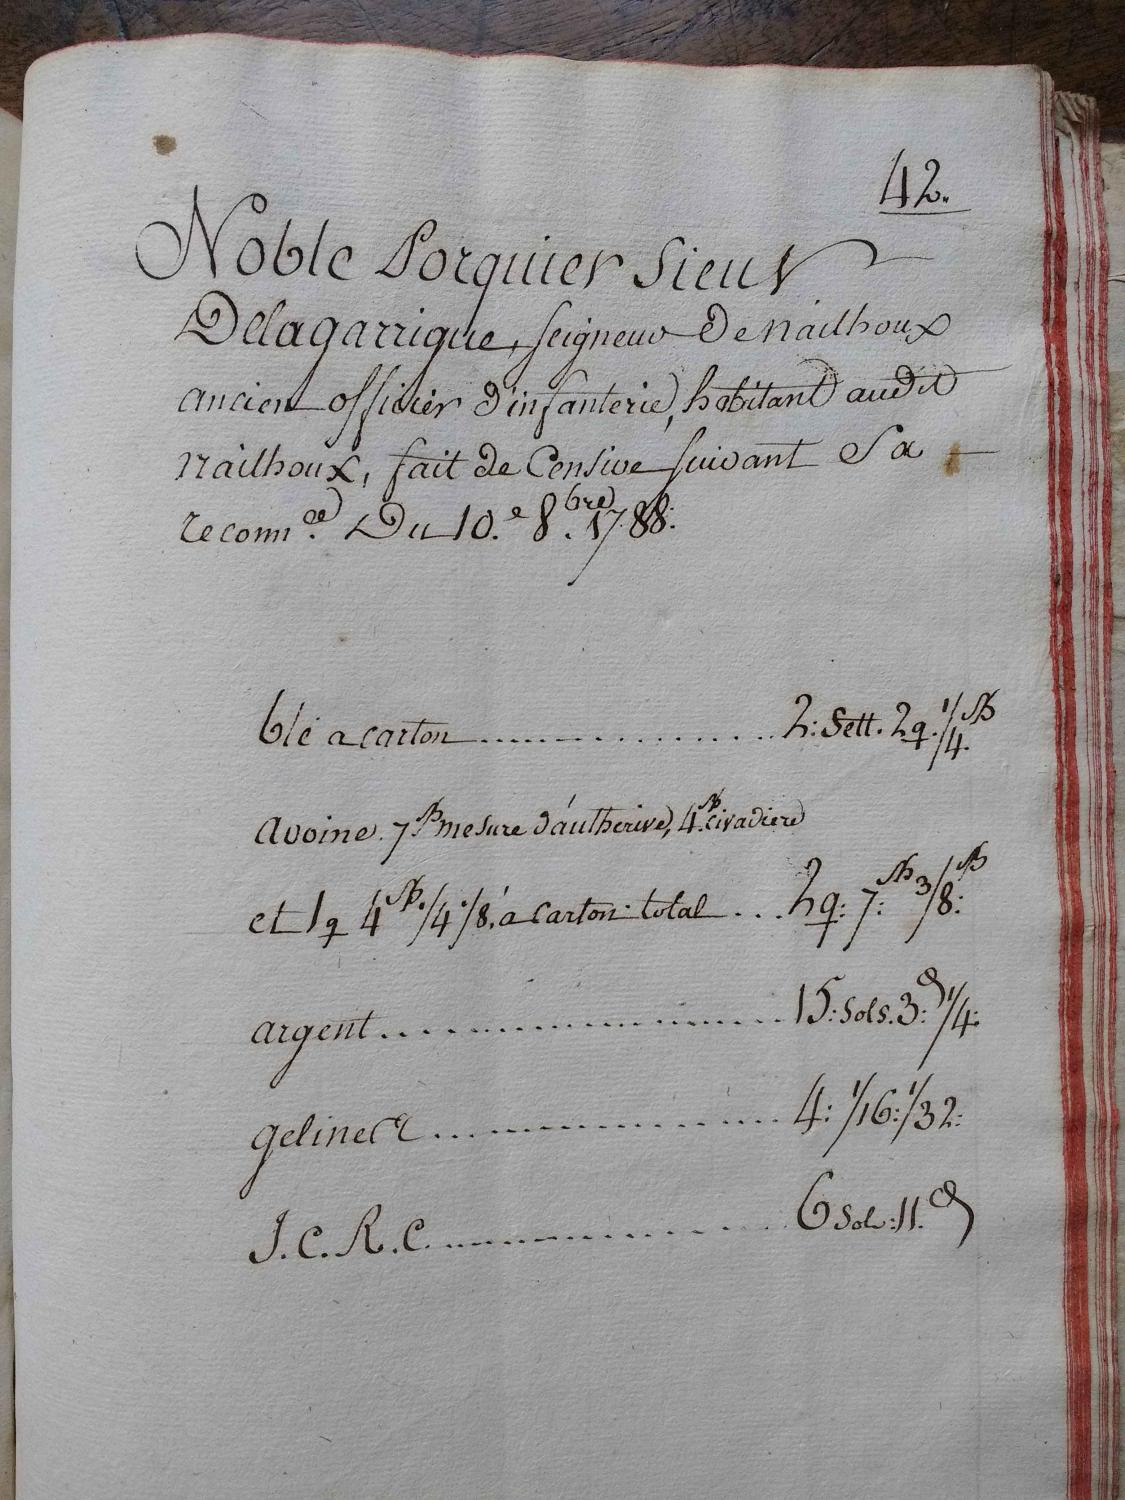 42.
Noble Porquier Sieur
Delagarrigue, seigneur de nailhoux
ancien officier d'infanterie, habitant audit
nailhoux, fait de Censive suivant Sa
reconn.ce Du 10.e 8.bre 1788:
blé a carton ............ 2: Sett. 2q. 1/4 B
avoine. 7 B mesure d'autherive, 4 B. civadiere
et 1q 4 B. 1/4 1/8, à carton total ... 2q: 7: B 3/8: B
argent ............ 15: Sols. 3: d 1/4:
geline ............ 4: 1/16: 1/32:
J. C. R. C. ............ 6 Sols: 11. d